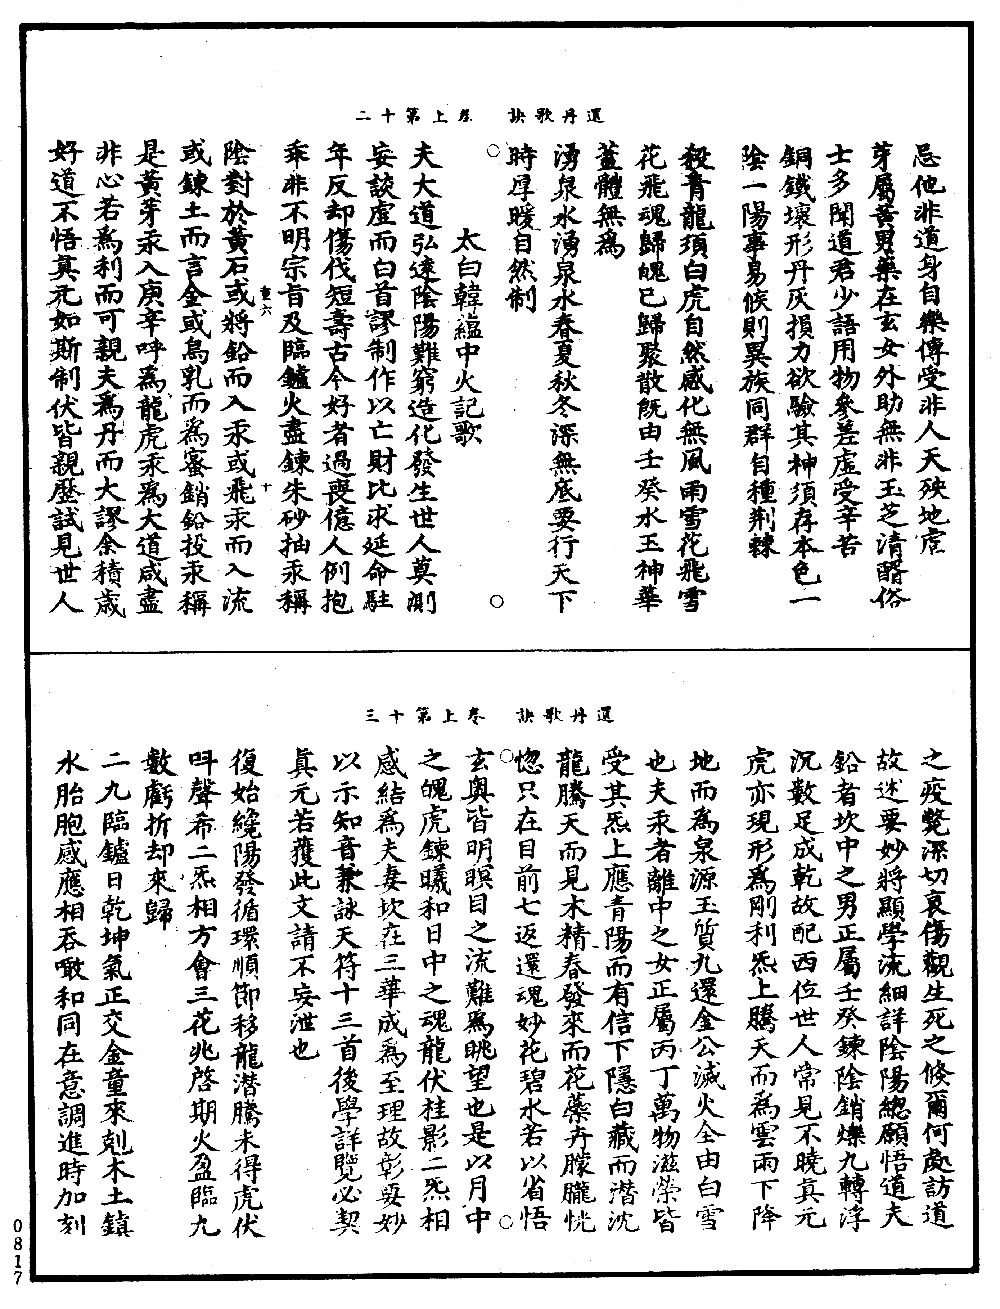 還丹歌訣　卷上第十二
忌他非道身自樂傳受非人天殃地虐
芽屬黃男藥在玄女外助無非玉芝清醑俗
士多聞道君少語用物參差虛受辛苦
銅鐵壞形丹灰損力欲驗其神須存本色一
陰一陽事易候則異族同群自種荆棘
殺青龍須白虎自然感化無風雨雪花飛雪
花飛魂歸魄已歸聚散旣由壬癸水王神華
蓋體無爲
湧泉水湧泉水春夏秋冬深無底要行天下
時厚暖自然制
太白韓蘊中火記歌
夫大道弘遠陰陽難窮造化發生世人莫測
妄談虛而白首謬制作以亡財比求延命駐
年反却傷伐短壽古今好者過喪億人例抱
乖非不明宗旨及臨鑪火盡鍊朱砂抽汞稱
重六　十
陰對於黃石或將鉛而入汞或飛汞而入流
或鍊土而言金或烏乳而爲審銷鉛投汞稱
是黃芽汞入庚辛呼爲龍虎汞爲大道咸盡
非心若爲利而可親夫爲丹而大謬余積歲
好道不悟真元如斯制伏皆親歷試見世人
還丹歌訣　卷上第十三
之疫斃深切哀傷觀生死之倏爾何處訪道
故述要妙將顯學流細詳陰陽總願悟道夫
鉛者坎中之男正屬壬癸鍊陰銷爍九轉浮
沉數足成乾故配西位世人常見不曉真元
虎亦現形爲剛利炁上騰天而爲雲雨下降
地而爲泉源玉質九還金公滅火全由白雪
也夫汞者離中之女正屬丙丁萬物滋榮皆
受其炁上應青陽而有信下隱白藏而潛沈
龍騰天而見木精春發來而花蘂卉朦朧恍
惚只在目前七返還魂妙花碧水若以省悟
玄奧皆明瞑目之流難爲眺望也是以月中
之魄虎鍊曦和日中之魂龍伏桂影二炁相
感結爲夫妻坎在三華成爲至理故彰要妙
以示知音兼詠天符十三首後學詳覽必契
真元若獲此文請不妄泄也
復始纔陽發循環順節移龍潛騰未得虎伏
呌聲希二炁相方會三花兆啓期火盈臨九
數虧折却來歸
二九臨鑪日乾坤氣正交金童來剋木土鎮
水胎胞感應相吞噉和同在意調進時加刻
0817